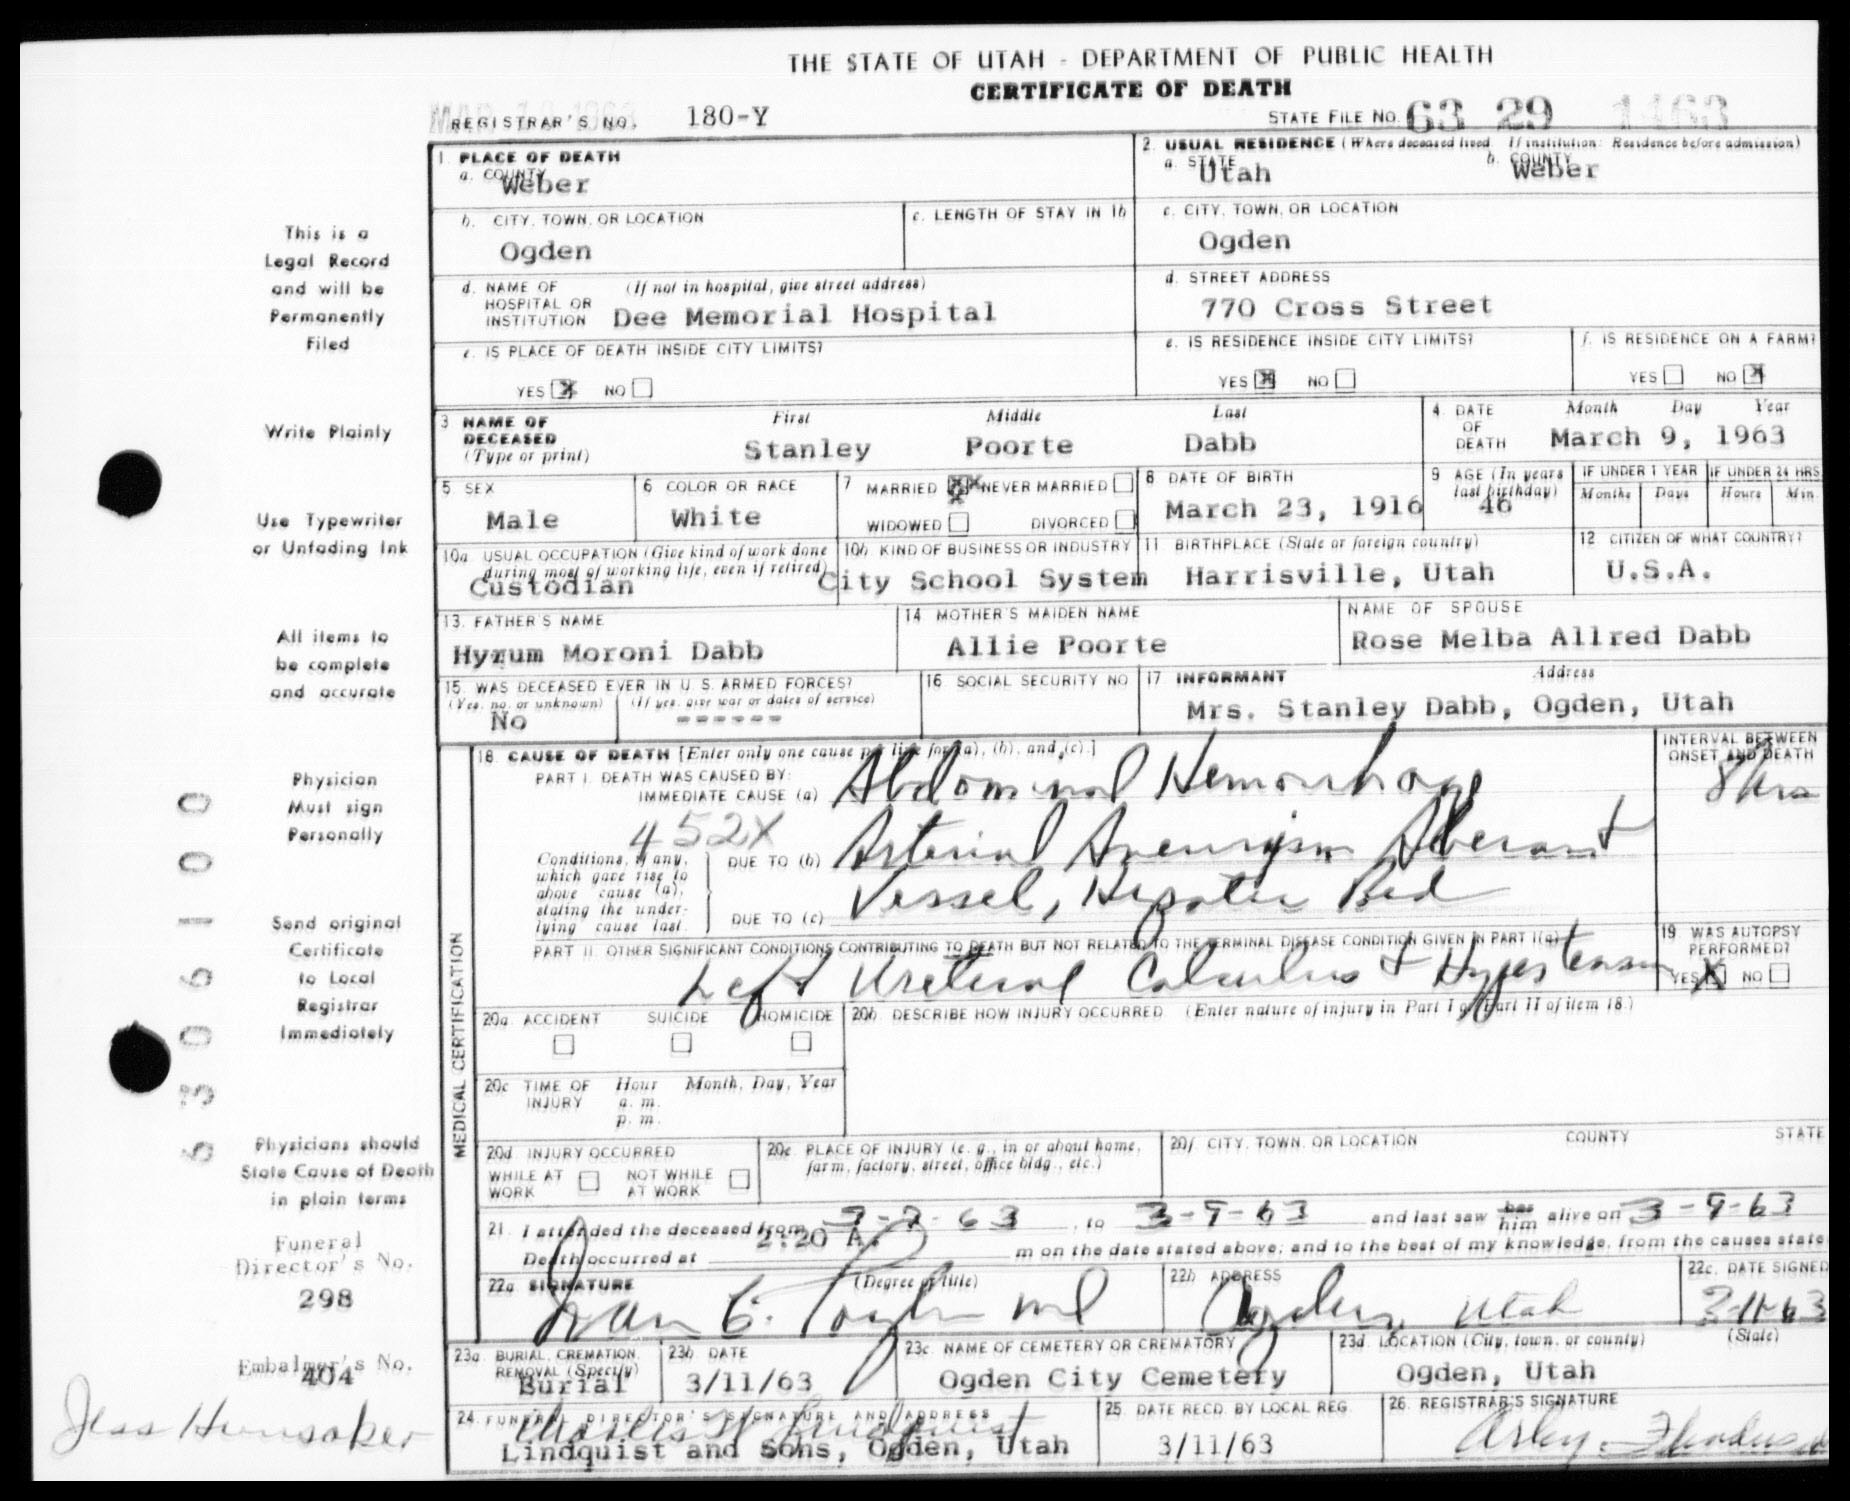 THE STATE OF UTAH - DEPARTMENT OF PUBLIC HEALTH
CERTIFICATE OF DEATH
REGISTRAR'S NO. 180-Y
STATE FILE NO. 63 29 1163
1. PLACE OF DEATH
a. COUNTY
Weber
2. USUAL RESIDENCE (Where deceased lived. If institution: Residence before admission)
a. STATE
Utah
b. COUNTY
Weber
b. CITY, TOWN, OR LOCATION
Ogden
c. LENGTH OF STAY IN 1b
c. CITY, TOWN, OR LOCATION
Ogden
d. NAME OF HOSPITAL OR INSTITUTION (If not in hospital, give street address)
Dee Memorial Hospital
d. STREET ADDRESS
770 Cross Street
e. IS PLACE OF DEATH INSIDE CITY LIMITS?
YES X NO
e. IS RESIDENCE INSIDE CITY LIMITS?
YES X NO
f. IS RESIDENCE ON A FARM?
YES NO X
3 NAME OF DECEASED (Type or print)
First Middle Last
Stanley Poorte Dabb
4. DATE OF DEATH
Month Day Year
March 9, 1963
5 SEX
Male
6 COLOR OR RACE
White
7 MARRIED X NEVER MARRIED
WIDOWED DIVORCED
8 DATE OF BIRTH
March 23, 1916
9 AGE (In years last birthday)
46
IF UNDER 1 YEAR
Months Days
IF UNDER 24 HRS
Hours Min.
10a USUAL OCCUPATION (Give kind of work done during most of working life, even if retired)
Custodian
10b KIND OF BUSINESS OR INDUSTRY
City School System
11 BIRTHPLACE (State or foreign country)
Harrisville, Utah
12 CITIZEN OF WHAT COUNTRY?
U.S.A.
13. FATHER'S NAME
Hyrum Moroni Dabb
14 MOTHER'S MAIDEN NAME
Allie Poorte
NAME OF SPOUSE
Rose Melba Allred Dabb
15. WAS DECEASED EVER IN U. S. ARMED FORCES?
(Yes, no, or unknown) (If yes, give war or dates of service)
No ------
16 SOCIAL SECURITY NO
17 INFORMANT Address
Mrs. Stanley Dabb, Ogden, Utah
18 CAUSE OF DEATH [Enter only one cause per line for (a), (b), and (c).]
PART I. DEATH WAS CAUSED BY:
IMMEDIATE CAUSE (a) Abdominal Hemorrhage
INTERVAL BETWEEN ONSET AND DEATH
8 hrs
452X
Conditions, if any, which gave rise to above cause (a), stating the underlying cause last.
DUE TO (b) Arterial Aneurysm Aberant
Vessel, Hepatic Bed
DUE TO (c)
PART II. OTHER SIGNIFICANT CONDITIONS CONTRIBUTING TO DEATH BUT NOT RELATED TO THE TERMINAL DISEASE CONDITION GIVEN IN PART I(a)
Left Ureteral Calculus & Hypertension
19 WAS AUTOPSY PERFORMED?
YES X NO
MEDICAL CERTIFICATION
20a. ACCIDENT SUICIDE HOMICIDE
20b DESCRIBE HOW INJURY OCCURRED (Enter nature of injury in Part I or Part II of item 18.)
20c TIME OF INJURY Hour Month, Day, Year
a. m.
p. m.
20d INJURY OCCURRED
WHILE AT WORK NOT WHILE AT WORK
20e. PLACE OF INJURY (e. g., in or about home, farm, factory, street, office bldg., etc.)
20f CITY, TOWN, OR LOCATION COUNTY STATE
21. I attended the deceased from 3-9-63, to 3-9-63 and last saw her him alive on 3-9-63
Death occurred at 2:20 A. m on the date stated above; and to the best of my knowledge, from the causes state
22a SIGNATURE (Degree or title)
MD
22b ADDRESS
Ogden, Utah
22c. DATE SIGNED
3-11-63
23a. BURIAL, CREMATION, REMOVAL (Specify)
Burial
23b DATE
3/11/63
23c. NAME OF CEMETERY OR CREMATORY
Ogden City Cemetery
23d. LOCATION (City, town, or county) (State)
Ogden, Utah
24. FUNERAL DIRECTOR'S SIGNATURE AND ADDRESS
Charles W Lindquist
Lindquist and Sons, Ogden, Utah
25 DATE RECD. BY LOCAL REG.
3/11/63
26. REGISTRAR'S SIGNATURE
This is a
Legal Record
and will be
Permanently
Filed
Write Plainly
Use Typewriter
or Unfading Ink
All items to
be complete
and accurate
Physician
Must sign
Personally
Send original
Certificate
to Local
Registrar
Immediately
Physicians should
State Cause of Death
in plain terms
Funeral
Director's No.
298
Embalmer's No.
404
Jess Hunsaker